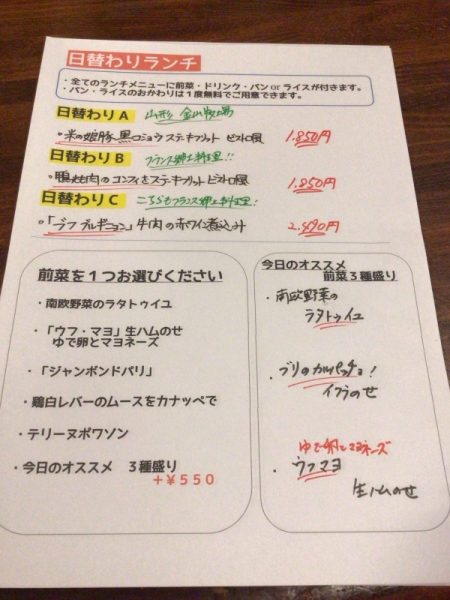 日替わりランチ
・全てのランチメニューに前菜・ドリンク・パン or ライスが付きます。
・パン・ライスのおかわりは１度無料でご用意できます。
日替わり A 山形 金山牧場
・米の娘豚 黒コショウ ステキフリット ビストロ風 1.850円
日替わり B フランス郷土料理!!
・鴨もも肉のコンフィとステーキフリット ビストロ風 1.850円
日替わり C こちらもフランス郷土料理!
・「ブフ ブルギニョン」牛肉の赤ワイン煮込み 2.490円
前菜を１つお選びください
・南欧野菜のラタトゥイユ
・「ウフ・マヨ」生ハムのせ
ゆで卵とマヨネーズ
・「ジャンボンドパリ」
・鶏白レバーのムースをカナッペで
・テリーヌポワソン
・今日のオススメ ３種盛り
＋￥５５０
今日のオススメ
前菜３種盛り
・南欧野菜の
ラタトゥイユ
・ブリのカルパッチョ!
イクラのせ
ゆで卵とマヨネーズ
・ウフマヨ
生ハムのせ